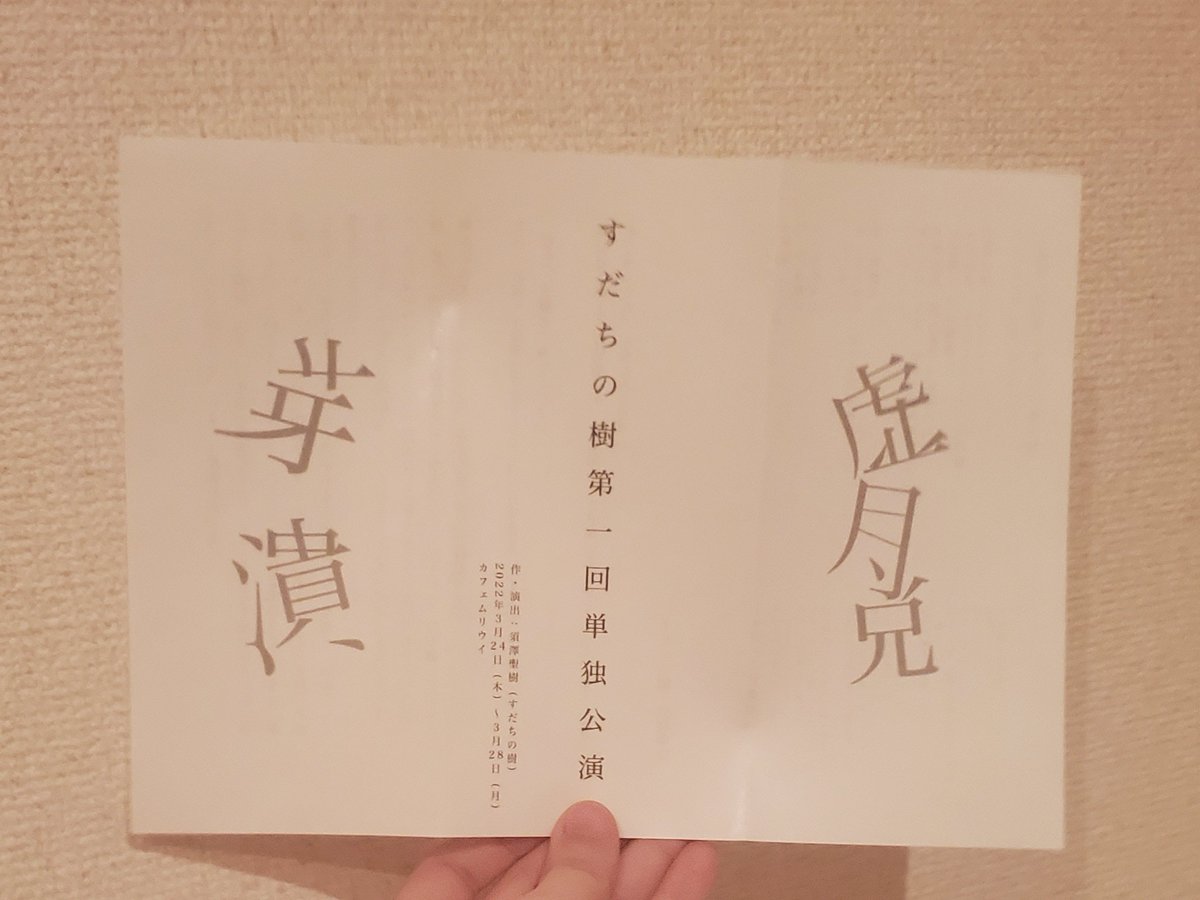 虚月兌
すだちの樹第一回単独公演
作・演出：須澤聖樹（すだちの樹）
2022年3月24日（木）〜3月28日（月）
カフェムリウイ
芽潰